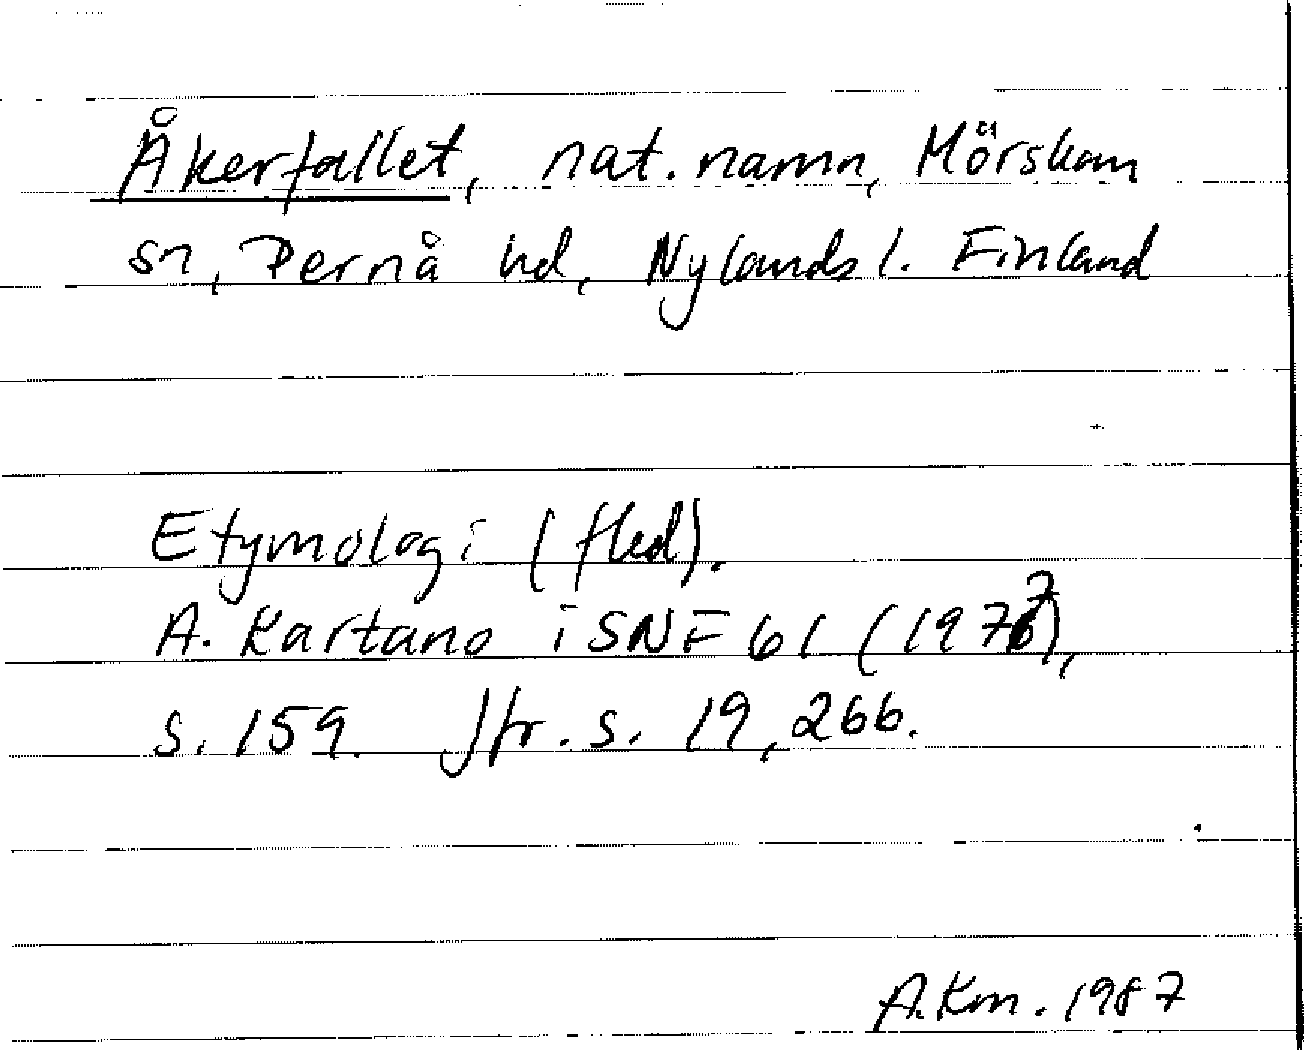 Åkerfallet, nat. namn, Mörskom
sn, Pernå hd, Nylands l. Finland
Etymologi (fled).
A. Kartano i SNF 61 (1977),
s. 159. Jfr. s. 19, 266.
A.Km. 1987